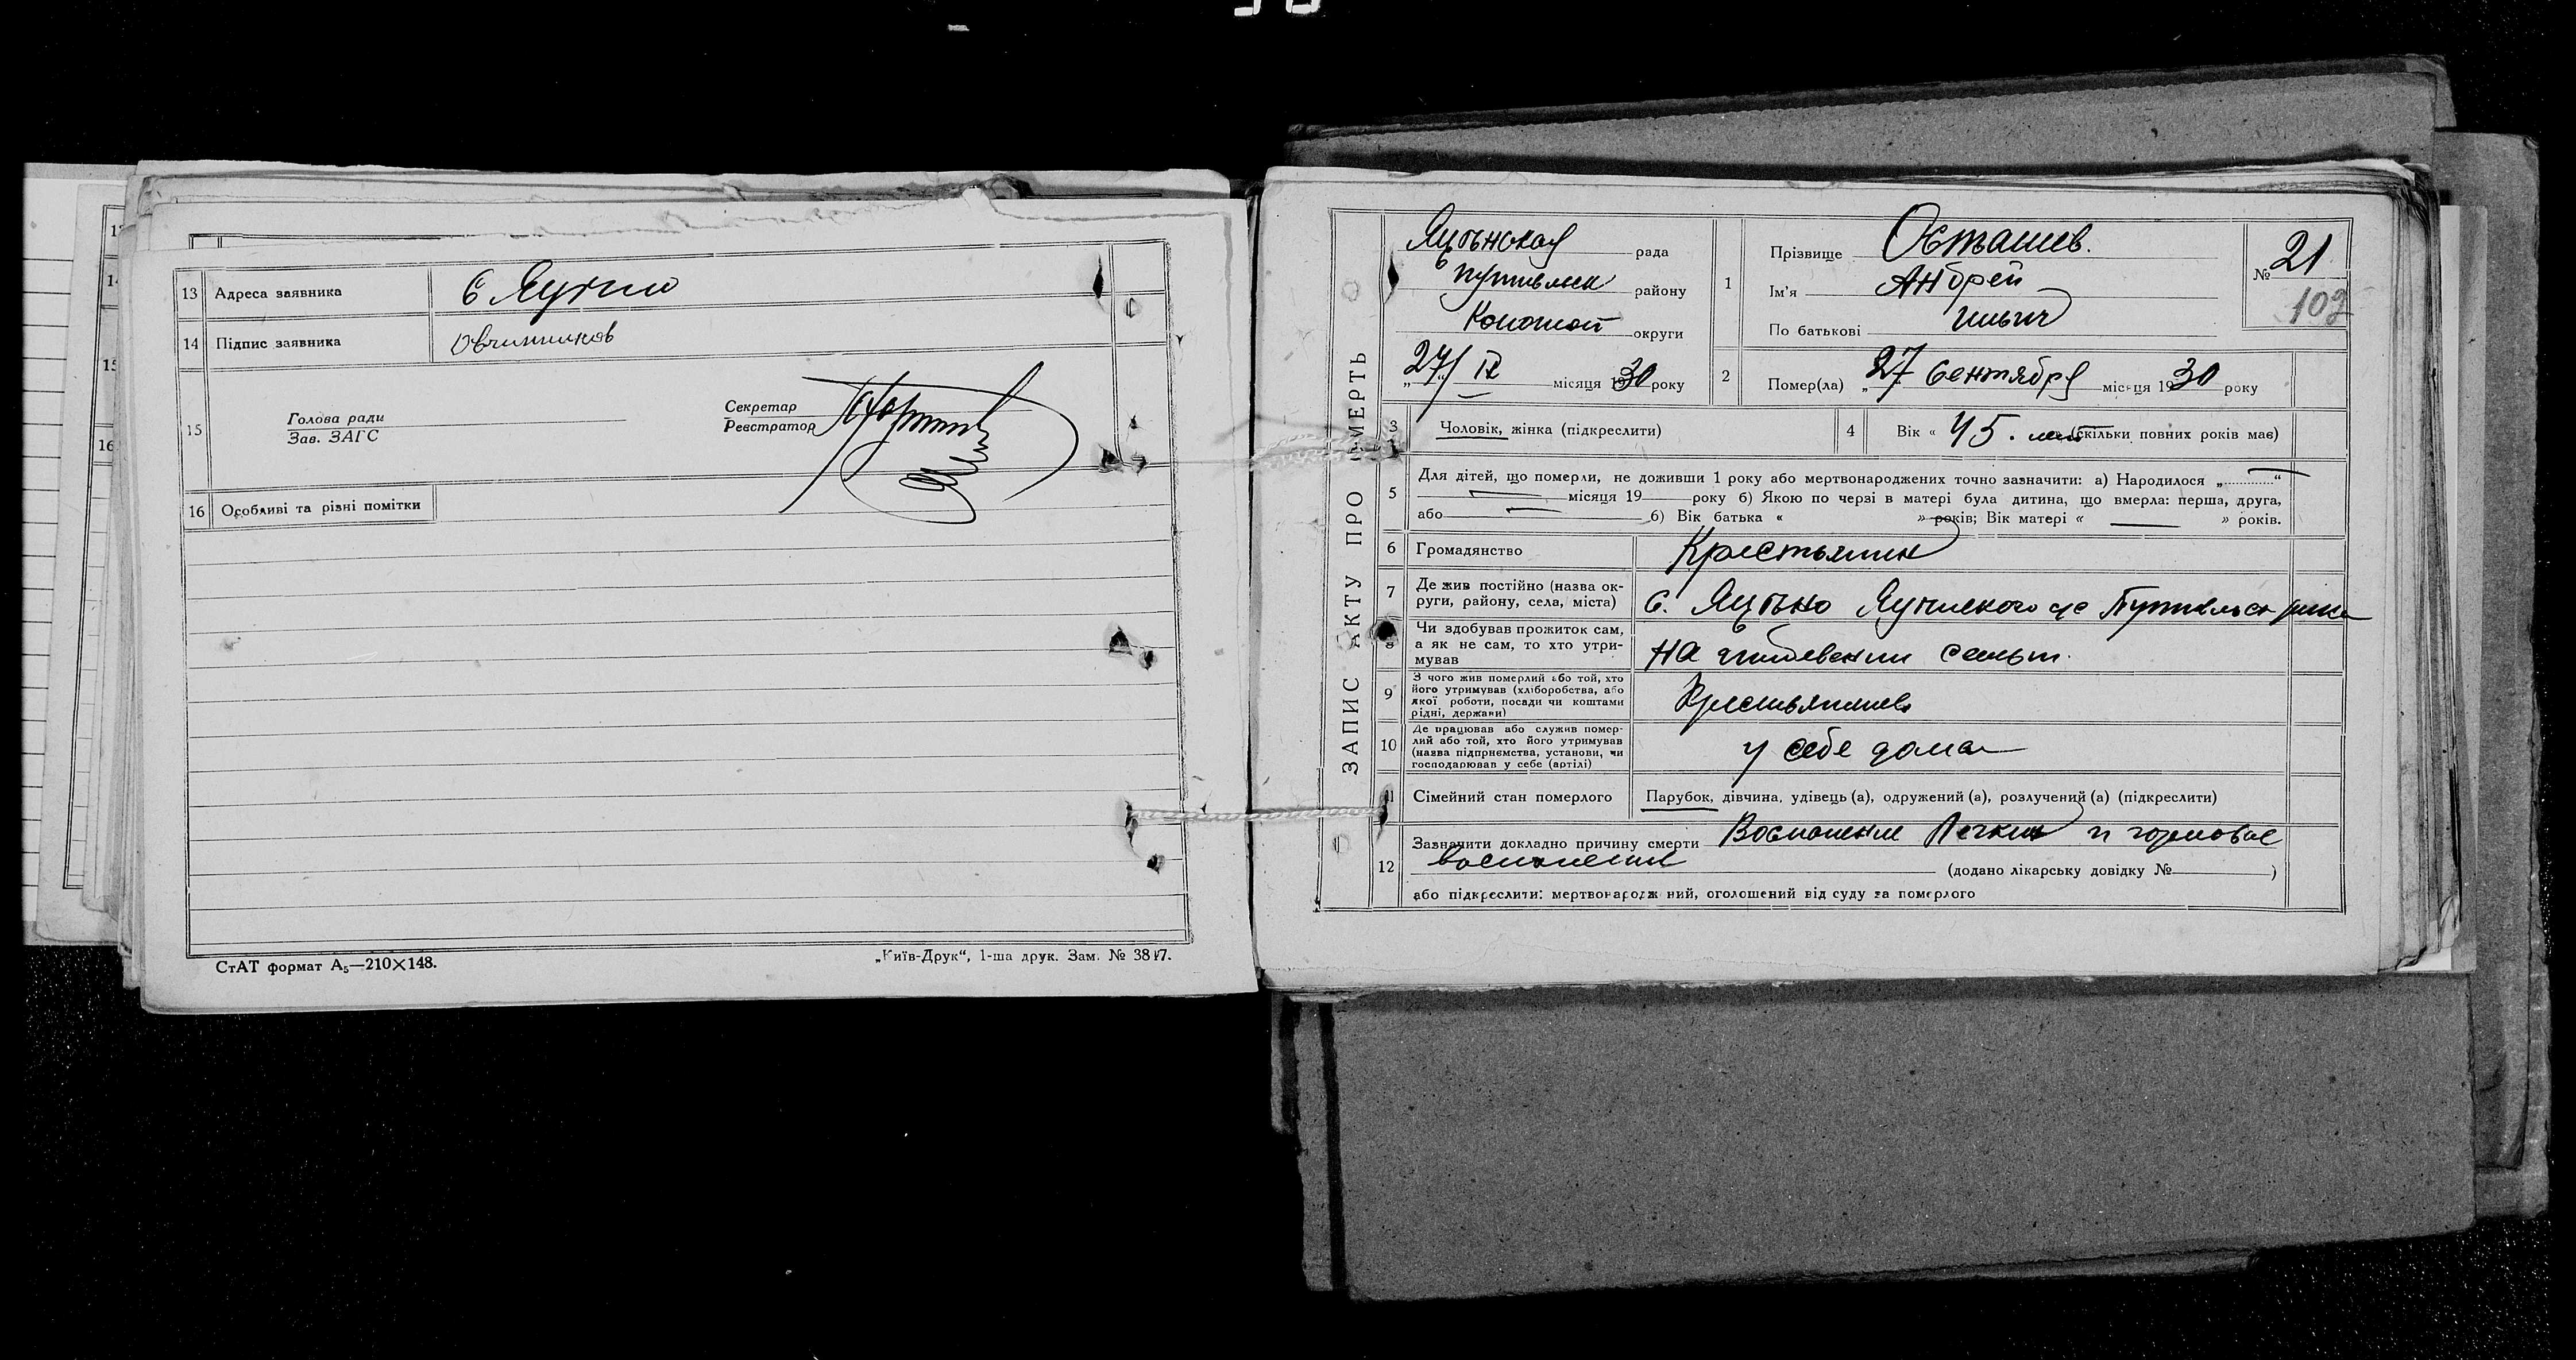 13 Адреса заявника с Яцыно
14 Підпис заявника Овчинников
15
Голова ради
Зав. ЗАГС
Секретар
Реєстратор
16 Особливі та різні помітки
СтАТ формат А₅—210×148.
„Київ-Друк“, 1-ша друк. Зам. № 3847.
ЗАПИС АКТУ ПРО СМЕРТЬ
Яцынская рада
Путивльск району
Конотоп округи
„27“ IX місяця 1930 року
1 Прізвище Осташев.
Ім'я Андрей
По батькові Ильич
№ 21
102
2 Помер(ла) „27 Сентября місяця 1930 року
3 Чоловік, жінка (підкреслити)
4 Вік « 45. лет » (скільки повних років має)
5 Для дітей, що померли, не доживши 1 року або мертвонароджених точно зазначити: а) Народилося „ “
— місяця 19 року б) Якою по черзі в матері була дитина, що вмерла: перша, друга,
або — б) Вік батька « » років; Вік матері « — » років.
6 Громадянство Крестьянин
7 Де жив постійно (назва округи, району, села, міста) С. Яцыно Яцынского с/с Путивльск района
8 Чи здобував прожиток сам,
а як не сам, то хто утримував
на иждевении семьи.
9 З чого жив померлий або той, хто
його утримував (хліборобства, або
якої роботи, посади чи коштами
рідні, держави)
10 Де працював або служив померлий або той, хто його утримував
(назва підприємства, установи, чи
господарював у себе (артілі)
у себе дома
11 Сімейний стан померлого Парубок, дівчина, удівець (а), одружений (а), розлучений (а) (підкреслити)
12 Зазначити докладно причину смерти Восполение Легких и
восполение (додано лікарську довідку № )
або підкреслити: мертвонароджений, оголошений від суду за померлого